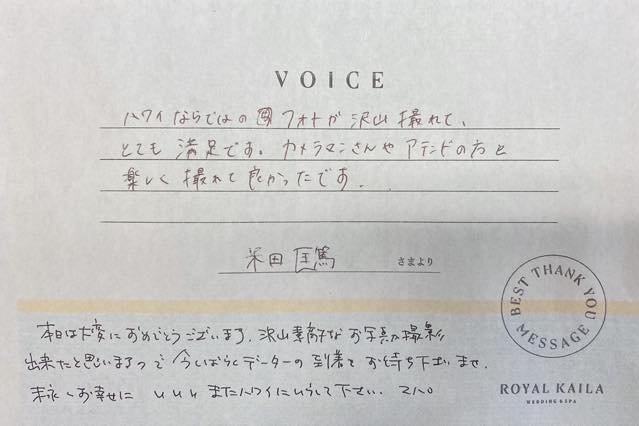 VOICE
ハワイならではの フォトが沢山撮れて、
とても満足です。カメラマンさんやアテンドの方と
楽しく撮れて良かったです.
米田 匡篤 さまより
BEST THANK YOU MESSAGE
本日は大変におめでとうございます. 沢山素敵なお写真が撮影
出来たと思いますので 今しばらくデーターの到着でお待ち下いませ.
末永くお幸せに いい またハワイにいらして下さい.
ROYAL KAILA
WEDDING & SPA